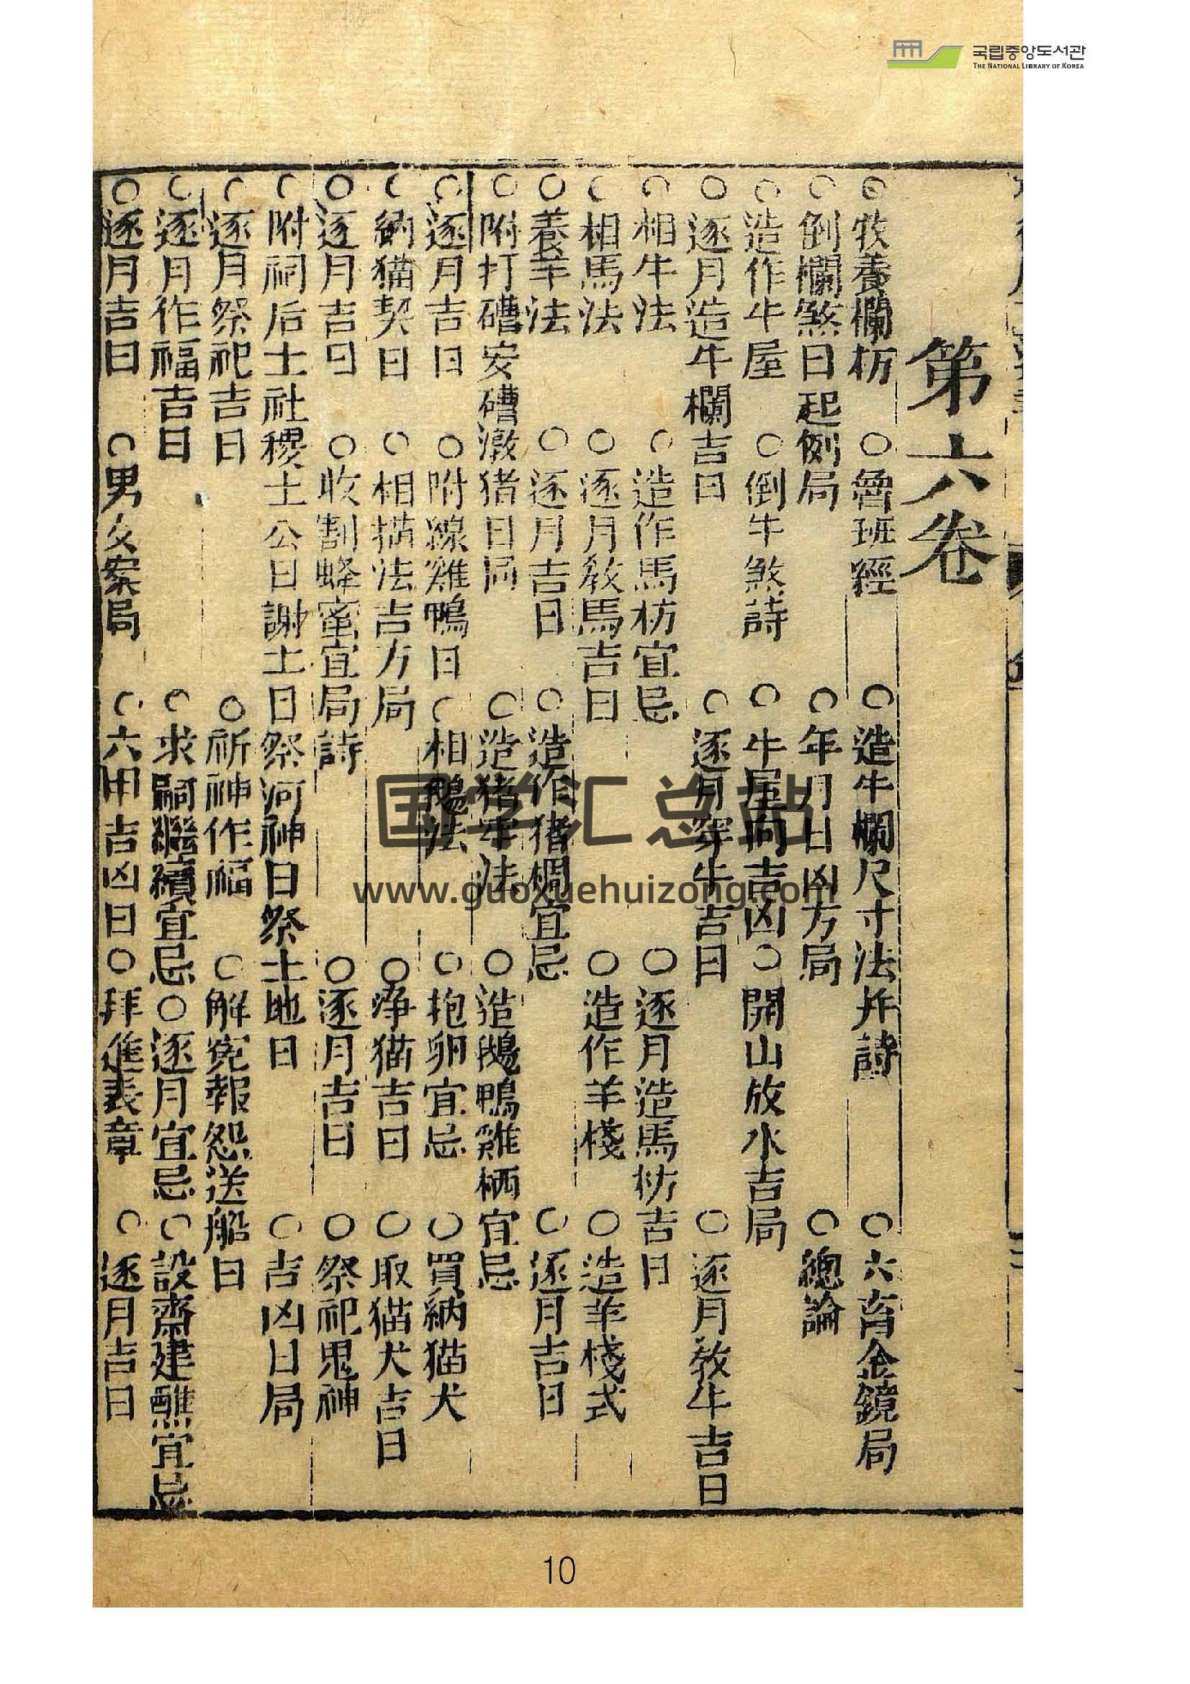 국립중앙도서관
THE NATIONAL LIBRARY OF KOREA
第六卷
○牧養欄枋○魯班經○造牛欄尺寸法幷詩○六畜金鏡局
○倒欄煞日起例局○年月日凶方局○總論
○造作牛屋○倒牛煞詩○牛屋向吉凶○開山放水吉局
○逐月造牛欄吉日○逐月穿牛吉日○逐月敎牛吉日
○相牛法○造作馬枋宜忌○逐月造馬枋吉日
○相馬法○逐月敎馬吉日○造作羊棧○造羊棧式
○養羊法○逐月吉日○造作猪欄宜忌○逐月吉日
○附打磚安磚激猪日局○造猪牢法○造鵝鴨雞栖宜忌
○逐月吉日○附線雞鴨日○相鵝法○抱卵宜忌○買納猫犬
○納猫契日○相猫法吉方局○淨猫吉日○取猫犬吉日
○逐月吉日○收割蜂蜜宜局詩○逐月吉日○祭祀鬼神
○附祠后土社稷土公日謝土日祭河神日祭土地日○吉凶日局
○逐月祭祀吉日○祈神作福○解寃報怨送船日
○逐月作福吉日○求嗣繼續宜忌○逐月宜忌○設齋建醮宜忌
○逐月吉日○男女案局○六甲吉凶日○拜進表章○逐月吉日
国学汇总站
www.guoxuehuizong.com
10